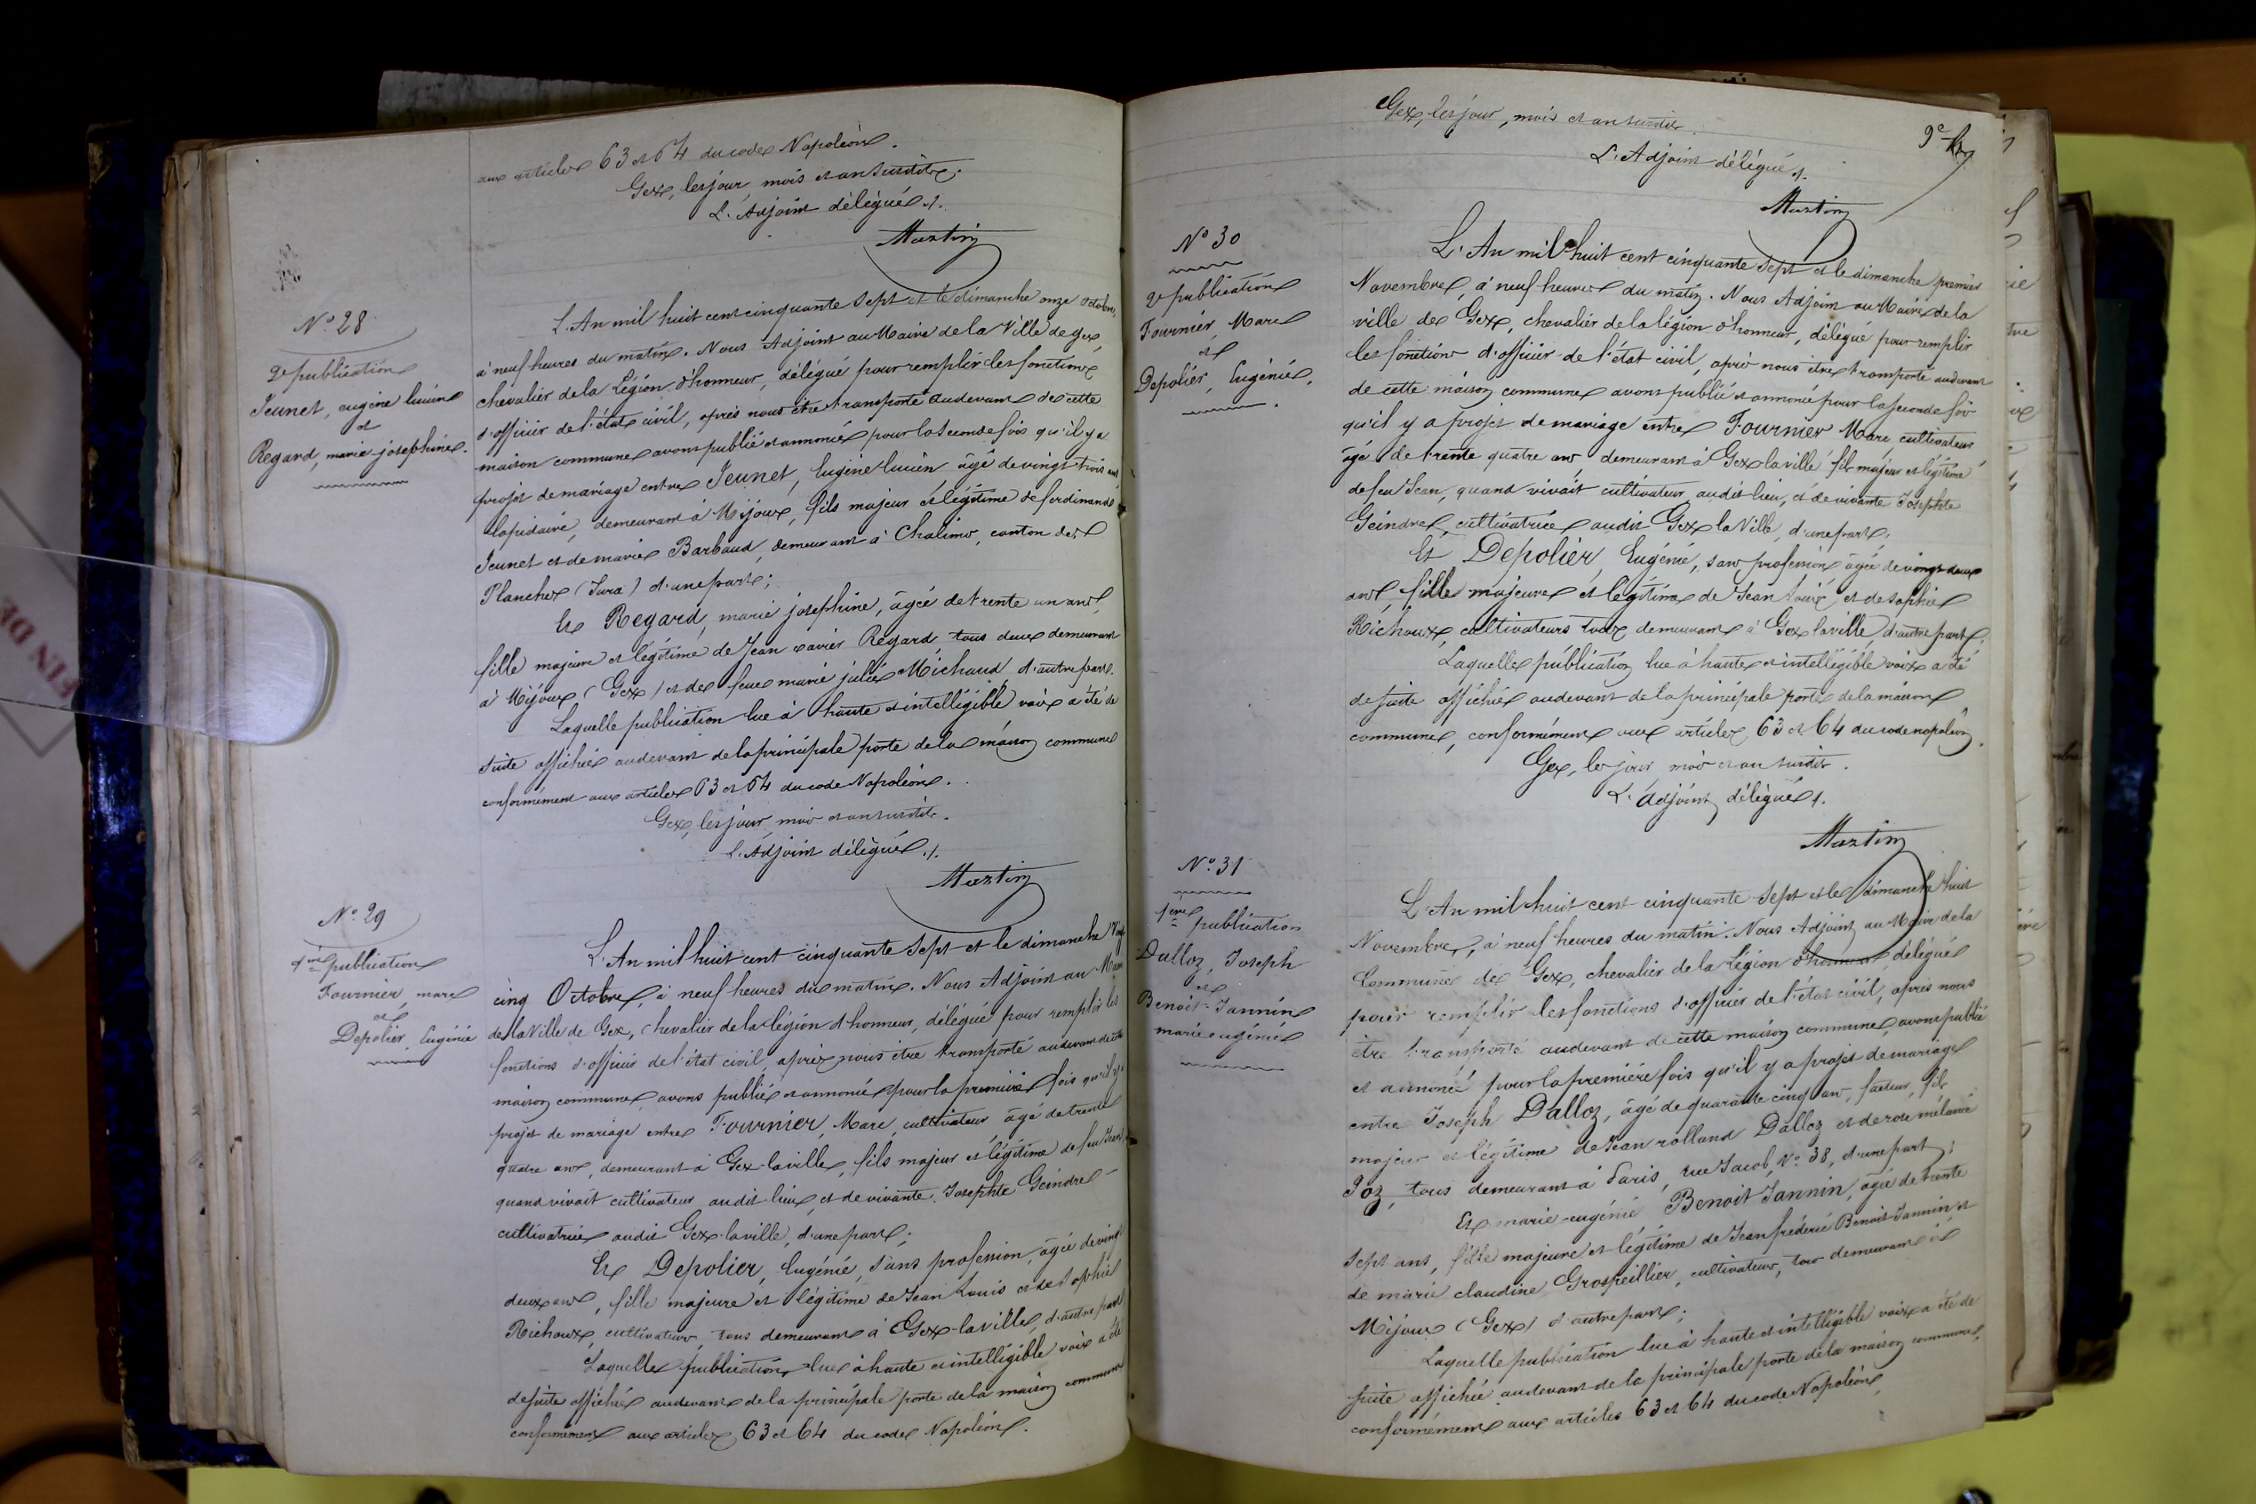 aux articles 63 et 64 du code Napoléon.
Gex, les jour, mois et an susdits.
L'Adjoint délégué /.
Martin
N° 28
2e publication
Jeunet, eugène lucien
et
Regard, marie josephine.
L'An mil huit cent cinquante sept et le dimanche onze octobre,
à neuf heures du matin. Nous Adjoint au Maire de la Ville de Gex,
chevalier de la Légion d'honneur, délégué pour remplir les fonctions
d'officier de l'état civil, après nous être transporté audevant de cette
maison commune avons publié et annoncé pour la seconde fois qu'il y a
projet de mariage entre Jeunet, Eugène lucien âgé de vingt trois ans
lapidaire, demeurant à Mijoux, fils majeur et légitime de ferdinand
Jeunet et de marie Barbaud, demeurant à Chalimo, canton des
Planches (Jura) d'une part;
Et Regard, marie josephine, âgée de trente un ans,
fille majeure et légitime de Jean xavier Regard, tous deux demeurant
à Mijoux (Gex) et de feue marie julie Michaud, d'autre part.
Laquelle publication lue à haute et intelligible voix a été de
suite affichée audevant de la principale porte de la maison commune
conformément aux articles 63 et 64 du code Napoléon.
Gex, les jour, mois et an susdits.
L'Adjoint délégué /.
Martin
N° 29
1ère publication
Fournier, marc
et
Depolier, Eugénie
L'An mil huit cent cinquante sept et le dimanche vingt
cinq Octobre, à neuf heures du matin. Nous Adjoint au Maire
de la Ville de Gex, chevalier de la légion d'honneur, délégué pour remplir les
fonctions d'officier de l'état civil, après nous être transporté audevant de cette
maison commune, avons publié et annoncé pour la première fois qu'il y a
projet de mariage entre Fournier, Marc, cultivateur âgé de trente
quatre ans, demeurant à Gex-la ville, fils majeur et légitime de feu Jean,
quand vivait cultivateur audit lieu, et de vivante Josephte Geindre
cultivatrice audit Gex-la ville, d'une part;
Et Depolier, Eugénie, sans profession, âgée de vingt
deux ans, fille majeure et légitime de Jean Louis et de Sophie
Richoux, cultivateurs, tous demeurant à Gex-la ville, d'autre part
Laquelle publication lue à haute et intelligible voix a été
de suite affichée audevant de la principale porte de la maison commune
conformément aux articles 63 et 64 du code Napoléon.
Gex, les jour, mois et an susdits.
9e
L'Adjoint délégué /.
Martin
N° 30
2e publication
Fournier Marc
et
Depolier, Eugénie,
L'An mil huit cent cinquante sept et le dimanche premier
Novembre, à neuf heures du matin. Nous Adjoint au Maire de la
ville de Gex, chevalier de la légion d'honneur, délégué pour remplir
les fonctions d'officier de l'état civil, après nous être transporté audevant
de cette maison commune avons publié et annoncé pour la seconde fois
qu'il y a projet de mariage entre Fournier Marc, cultivateur
âgé de trente quatre ans demeurant à Gex la ville fils majeur et légitime
de feu Jean, quand vivait cultivateur audit lieu, et de vivante Josephte
Geindre, cultivatrice audit Gex la Ville, d'une part;
Et Depolier, Eugénie, sans profession âgée de vingt deux
ans, fille majeure et légitime de Jean Louis et de Sophie
Richoux, cultivateurs tous demeurant à Gex la ville d'autre part.
Laquelle publication lue à haute et intelligible voix a été
de suite affichée audevant de la principale porte de la maison
commune, conformément aux articles 63 et 64 du code napoléon.
Gex, les jour, mois et an susdits.
L'adjoint délégué /.
Martin
N° 31
1ère publication
Dalloz, Joseph
et
Benoit-Jannin
marie eugénie
L'An mil huit cent cinquante sept et le dimanche huit
Novembre, à neuf heures du matin. Nous Adjoint au Maire de la
Commune de Gex, chevalier de la Légion d'honneur délégué
pour remplir les fonctions d'officier de l'état civil, après nous
être transporté audevant de cette maison commune, avons publié
et annoncé pour la première fois qu'il y a projet de mariage
entre Joseph Dalloz, âgé de quarante cinq ans, facteur, fils
majeur et légitime de Jean rolland Dalloz et de rose mélanie
Poz, tous demeurant à Paris, rue Jacob, N° 38, d'une part;
Et marie-eugénie Benoit Jannin, âgée de trente
sept ans, fille majeure et légitime de Jean frédéric Benoit-Jannin et
de marie claudine Grospeillier, cultivateurs, tous demeurant à
Mijoux (Gex) d'autre part;
Laquelle publication lue à haute et intelligible voix a été de
suite affichée audevant de la principale porte de la maison commune,
conformément aux articles 63 et 64 du code Napoléon,